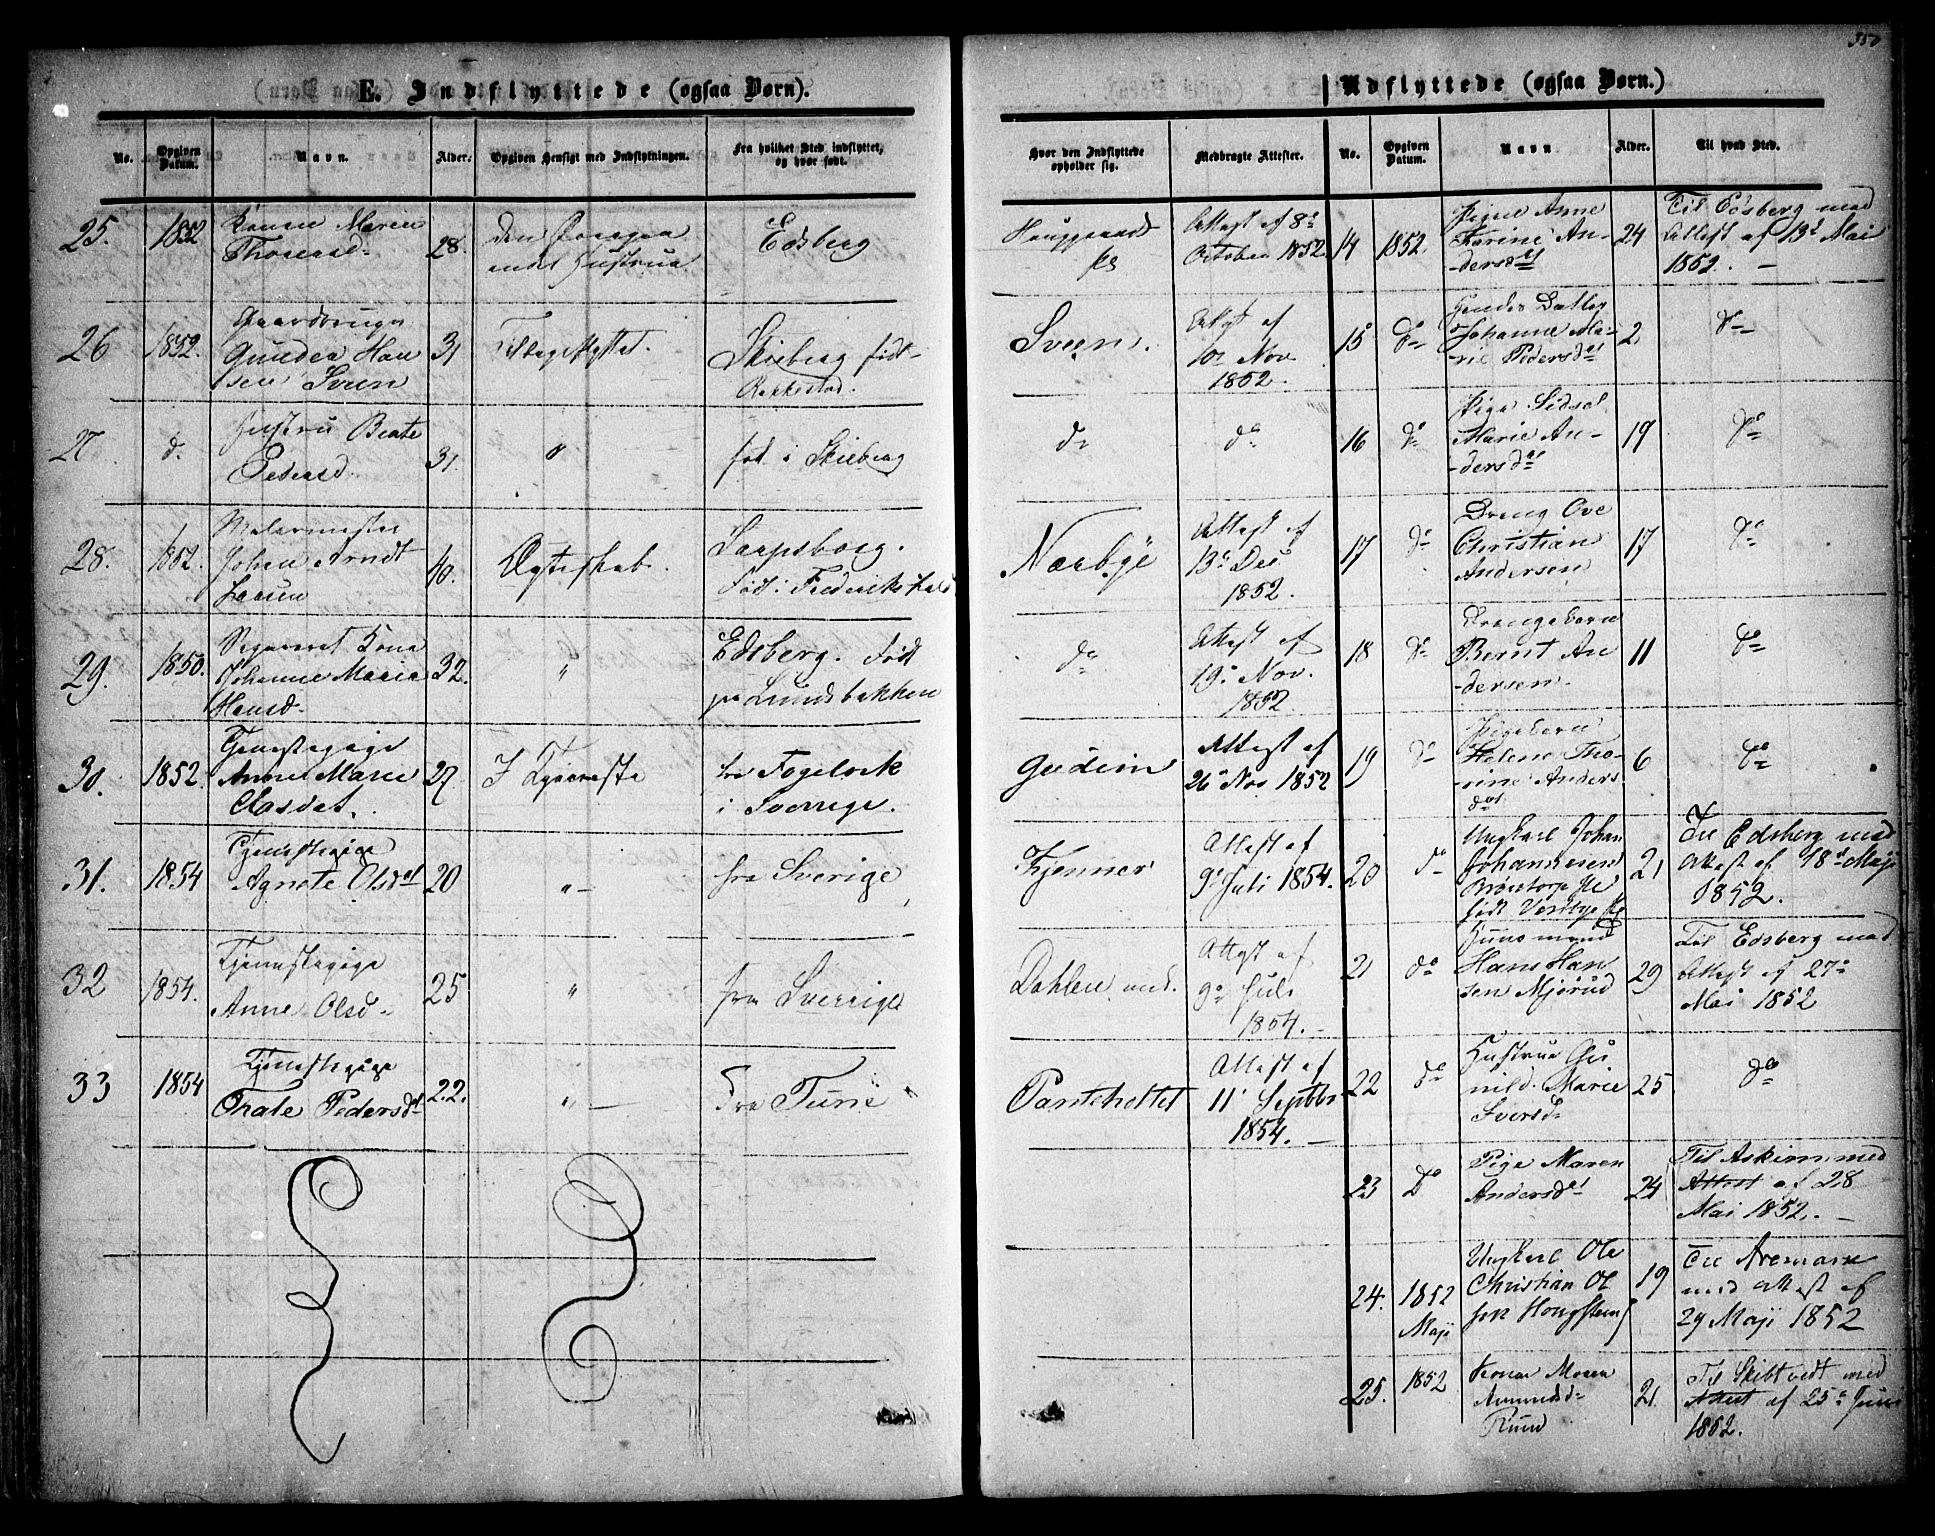 350
E. Indflyttede (ogsaa Børn).
No.
Opgiven Datum.
Navn.
Alder.
Opgiven Hensigt med Indflytningen.
Fra hvilket Sted indflyttet, og hvor født.
Hvor den Indflyttede opholder sig.
Medbragte Attester.
25.
1852
Konen Maren
28.
Edsberg
Attest af 8de
October 1852.
26
1852.
Gunder Han
sen Sveen
31
Skieberg født
Rakkestad.
Sveen.
Attest af
10 Nov.
1852.
27
d.
Hustru Beate
Pedersd.
31.
"
fød i Skieberg
do
do
28.
1852.
Malermester
Johan Arndt
Larsen
40.
Ægteskab.
Sarpsborg.
Født i Frederikshald
Nordbye
Attest af
13de Dec
1852.
29.
1850.
Johanne Marie
Hansd.
32.
"
Edsberg. Født
paa Lundsbakken
do
Attest af
19. Nov.
1852
30.
1852.
Tjenestepige
Anne Marie
27
I Tjeneste
fra Fogelvik
i Sverrige.
Gudim
Attest af
26 Nov 1852
31.
1854
Tjenestepige
Agnete Olsdat
20
"
fra Sverige
Kjenner
Attest af
9de Juli 1854.
32
1854.
Tjenestepige
Anne Olsd.
25
"
fra Sverrige
Dahlen
Attest af
9de Juli
1854.
33
1854
Tjenestepige
Pedersdt
22.
"
Fra Tune
Attest af
11 Septbr
1854.
Udflyttede (ogsaa Børn.)
No.
Opgiven Datum.
Navn
Alder.
Til hvad Sted.
14
1852.
Pigen Anne
Karine An-
dersdat
24
Til Edsberg med
Attest af 13de Mai
1852.
15
do
Johanne Ma-
rie Pedersdat
2
do
16
do
Pige Sidsel
Marie An-
dersdat
19
do
17
do
Dreng Ove
Christian
Andersen
17
do
18
do
Drengebarn
Bernt An
dersen.
11
do
19
do
Pigebarn
Helene Tho-
rine Anders
dat
6
do
20
do
Ungkarl Johan
Johannesen
21
Til Edsberg med
Attest af 18de Maji
1852.
21
do
Huusmand
Hans Han
sen Mjørud
29
Til Edsberg med
Attest af 27de
Mai 1852
22
do
Hustrue Gu
nild Marie
Iversd.
25
do
23
Do
Pige Maren
Andersdat
24
Til Askim med
Attest af 28
Mai 1852.
24.
1852
Maji
Ungkarl Ole
Christian Ol
sen
19
Til Aremark
med Attest af
29 Maji 1852
25.
1852
Konen Maren
Amundsd.
Ruud
21
Til Skibtvedt med
Attest af 25de Juni
1852.